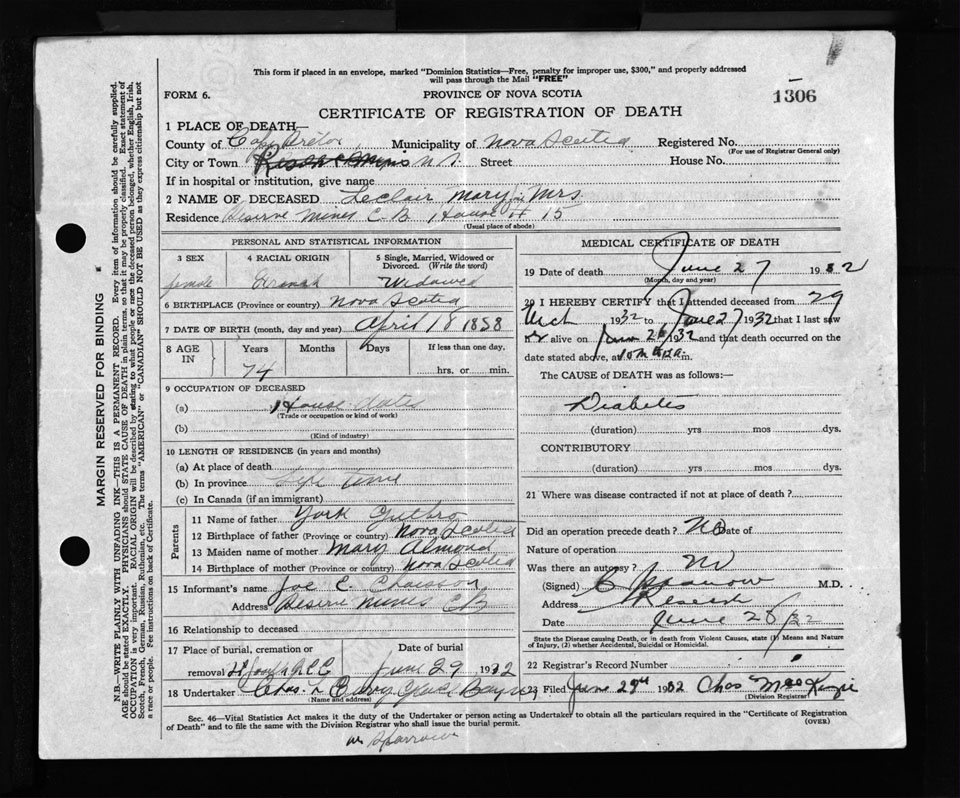 This form if placed in an envelope, marked "Dominion Statistics—Free, penalty for improper use, $300," and properly addressed
will pass through the Mail "FREE"
FORM 6.
PROVINCE OF NOVA SCOTIA
1306
CERTIFICATE OF REGISTRATION OF DEATH
1 PLACE OF DEATH—
County of Cape Breton Municipality of Nova Scotia Registered No.
(For use of Registrar General only)
City or Town Reserve Mines N.S. Street House No.
If in hospital or institution, give name
2 NAME OF DECEASED Leclair Mary Mrs
Residence Reserve Mines C.B. House # 15
(Usual place of abode)
PERSONAL AND STATISTICAL INFORMATION
3 SEX
4 RACIAL ORIGIN
5 Single, Married, Widowed or
Divorced. (Write the word)
female French Widowed
6 BIRTHPLACE (Province or country) Nova Scotia
7 DATE OF BIRTH (month, day and year) April 18 1858
8 AGE IN
Years Months Days If less than one day.
74 hrs. or min.
9 OCCUPATION OF DECEASED
(a) House
(Trade or occupation or kind of work)
(b)
(Kind of industry)
10 LENGTH OF RESIDENCE (in years and months)
(a) At place of death
(b) In province Life Time
(c) In Canada (if an immigrant)
Parents
11 Name of father York Guthro
12 Birthplace of father (Province or country) Nova Scotia
13 Maiden name of mother Mary Almond
14 Birthplace of mother (Province or country) Nova Scotia
15 Informant's name Joe E. Chaisson
Address Reserve Mines CB
16 Relationship to deceased
17 Place of burial, cremation or Date of burial
removal St Joseph June 29 1932
18 Undertaker Chas. Glace Bay
(Name and address)
MEDICAL CERTIFICATE OF DEATH
19 Date of death June 27 1932
(Month, day and year)
20 I HEREBY CERTIFY that I attended deceased from 29
Mch 1932 to June 27 1932 that I last saw
alive on June 26/32 and that death occurred on the
date stated above, at 10 m.
The CAUSE of DEATH was as follows:—
Diabetes
(duration) yrs mos dys.
CONTRIBUTORY
(duration) yrs mos dys.
21 Where was disease contracted if not at place of death?
Did an operation precede death? No Date of
Nature of operation
Was there an autopsy? No
(Signed) Sparrow M.D.
Address Reserve
Date June 28/32
State the Disease causing Death, or in death from Violent Causes, state (1) Means and Nature
of Injury, (2) whether Accidental, Suicidal or Homicidal.
22 Registrar's Record Number
23 Filed June 29th 1932 Chas McKenzie
(Division Registrar)
Sec. 46—Vital Statistics Act makes it the duty of the Undertaker or person acting as Undertaker to obtain all the particulars required in the "Certificate of Registration
of Death" and to file the same with the Division Registrar who shall issue the burial permit.
(OVER)
Sparrow
MARGIN RESERVED FOR BINDING
N.B.—WRITE PLAINLY WITH UNFADING INK—THIS IS A PERMANENT RECORD. Every item of information should be carefully supplied.
AGE should be stated EXACTLY. PHYSICIANS should STATE CAUSE OF DEATH in plain terms, so that it may be properly classified. Exact statement of
OCCUPATION is very important. RACIAL ORIGIN will be described by stating to what people or race the deceased person belonged, whether English, Irish,
Scotch, French, German, Russian, Ruthenian, etc. The terms "AMERICAN" or "CANADIAN" SHOULD NOT BE USED as they express citizenship but not
a race or people. Fee instructions on back of Certificate.